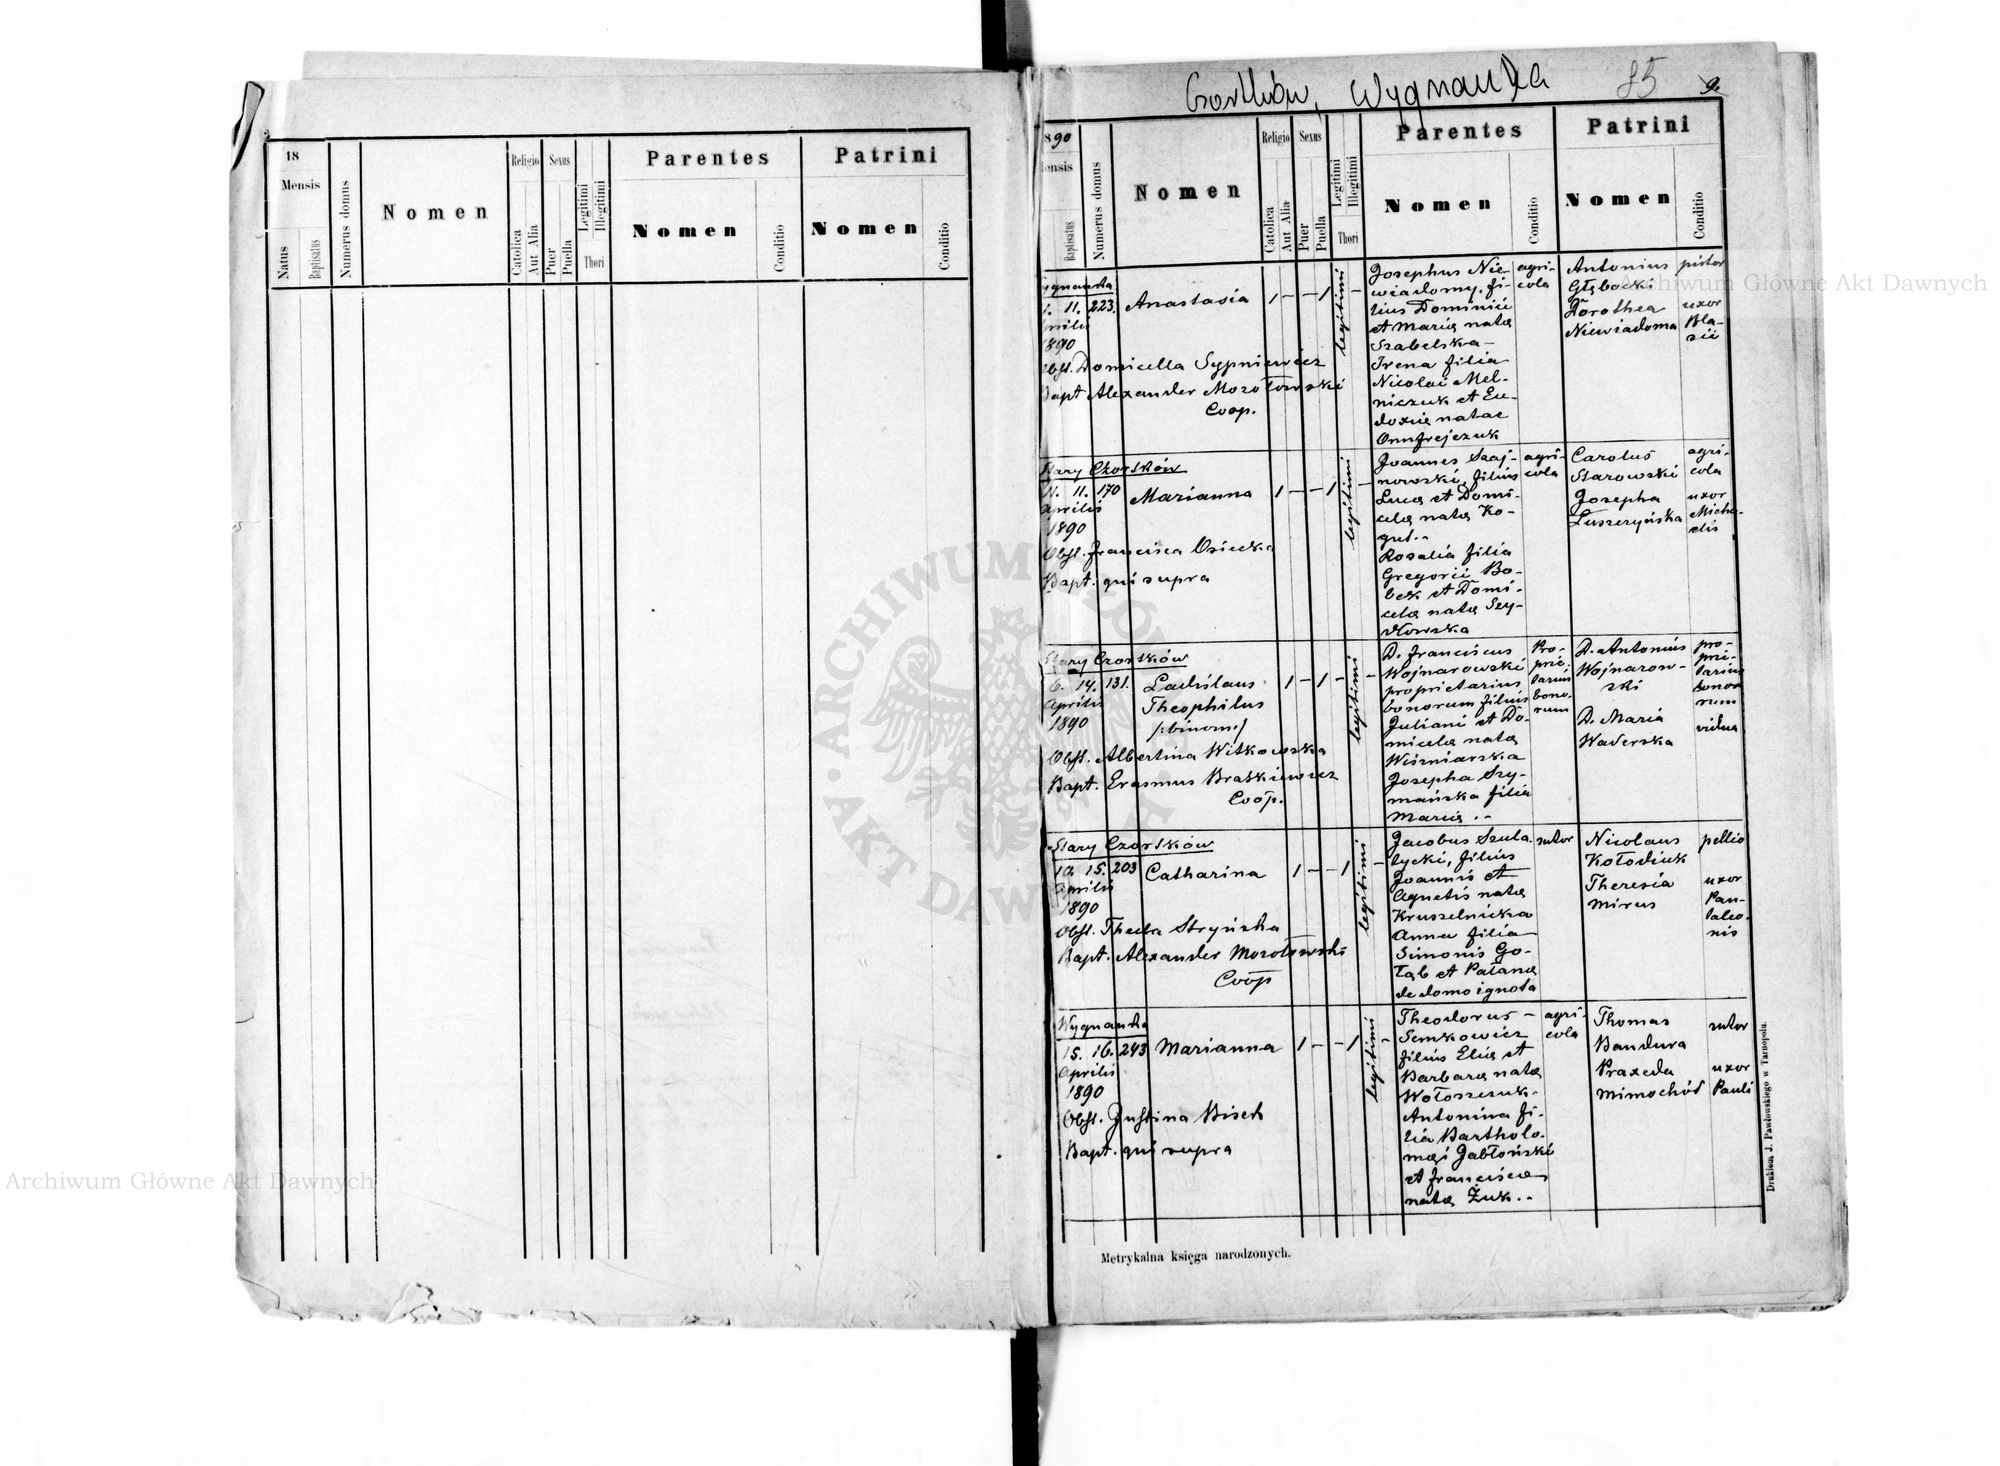 Czortków, Wygnanka 85 9.
18
Mensis
Natus
Baptisatus
Numerus domus
Nomen
Religio
Catolica
Aut Alia
Sexus
Puer
Puella
Legitimi
Illegitimi
Thori
Parentes
Nomen
Conditio
Patrini
Nomen
Conditio
890
ensis
Baptisatus
Numerus domus
Nomen
Religio
Catolica
Aut Alia
Sexus
Puer
Puella
Legitimi
Illegitimi
Thori
Parentes
Nomen
Conditio
Patrini
Nomen
Conditio
ygnanka
11. 223. Anastasia 1 – – 1 legitimi –
prilis
890
Obst. Domicella Sypniewicz
Bapt Alexander Mozołowski
Coop.
Josephus Nie-
wiadomy, fi-
lius Dominici
et Mariæ natæ
Szabelska –
Irena filia
Nicolai Mel-
niczuk et Eu-
doxiæ natae
Onufrejczuk
agri-
cola
Antonius
Głębocki
Dorothea
Niewiadoma
pistor
uxor
Bla-
sii
Stary Czortków
11. 11. 170 Marianna 1 – – 1 legitimi –
Aprilis
1890
Obst. Francisca Osiecka
Bapt. qui supra
Joannes Szaj-
nowski, filius
Lucæ et Domi-
celæ natæ Ko-
gut..
Rosalia filia
Gregorii Bo-
bek et Domi-
celæ natæ Scy-
słowska
agri-
cola
Carolus
Starowski
Josepha
Luszczyńska
agri-
cola
uxor
Micha-
elis
Stary Czortków
6. 14. 131. Ladislaus 1 – 1 – legitimi –
Aprilis Theophilus
1890 /:binom:/
Obst. Albertina Witkowska
Bapt. Erasmus Braśkiewicz
Coop.
D. Franciscus
Wojnarowski
proprietarius
bonorum filius
Juliani et Do-
micelæ natæ
Wiśniarska
Josepha Szy-
mańska filia
Mariæ . –
Pro-
prie-
tarius
bono-
rum
D. Antonius
Wojnarow-
ski
D. Maria
Waderska
pro-
prie-
tarius
bono-
rum
vidua
Stary Czortków
10. 15. 203 Catharina 1 – – 1 legitimi –
Aprilis
1890
Obst. Thecla Stryjska
Bapt. Alexander Mozołowski
Coop
Jacobus Szula-
tycki, filius
Joannis et
Agnetis natæ
Kruszelnicka
Anna filia
Simonis Go-
łąb et Palanæ
de domo ignota
sutor
Nicolaus
Kołodiuk
Theresia
Mirus
pellio
uxor
Pan-
taleo-
nis
Wygnanka
15. 16. 243 Marianna 1 – – 1 legitimi –
Aprilis
1890
Obst. Justina Bisch
Bapt. qui supra
Theodorus –
Semkowicz
filius Eliæ et
Barbaræ natæ
Wołoszczuk-
Antonina fi-
lia Bartholo-
mæi Jabłoński
et Franciscæ
natæ Żuk..
agri-
cola
Thomas
Bandura
Praxeda
Mimochód
sutor
uxor
Pauli
Drukiem J. Pawłowskiego w Tarnopolu.
Metrykalna księga narodzonych.
Archiwum Główne Akt Dawnych
Archiwum Główne Akt Dawnych
ARCHIWUM GŁÓWNE AKT DAWNYCH